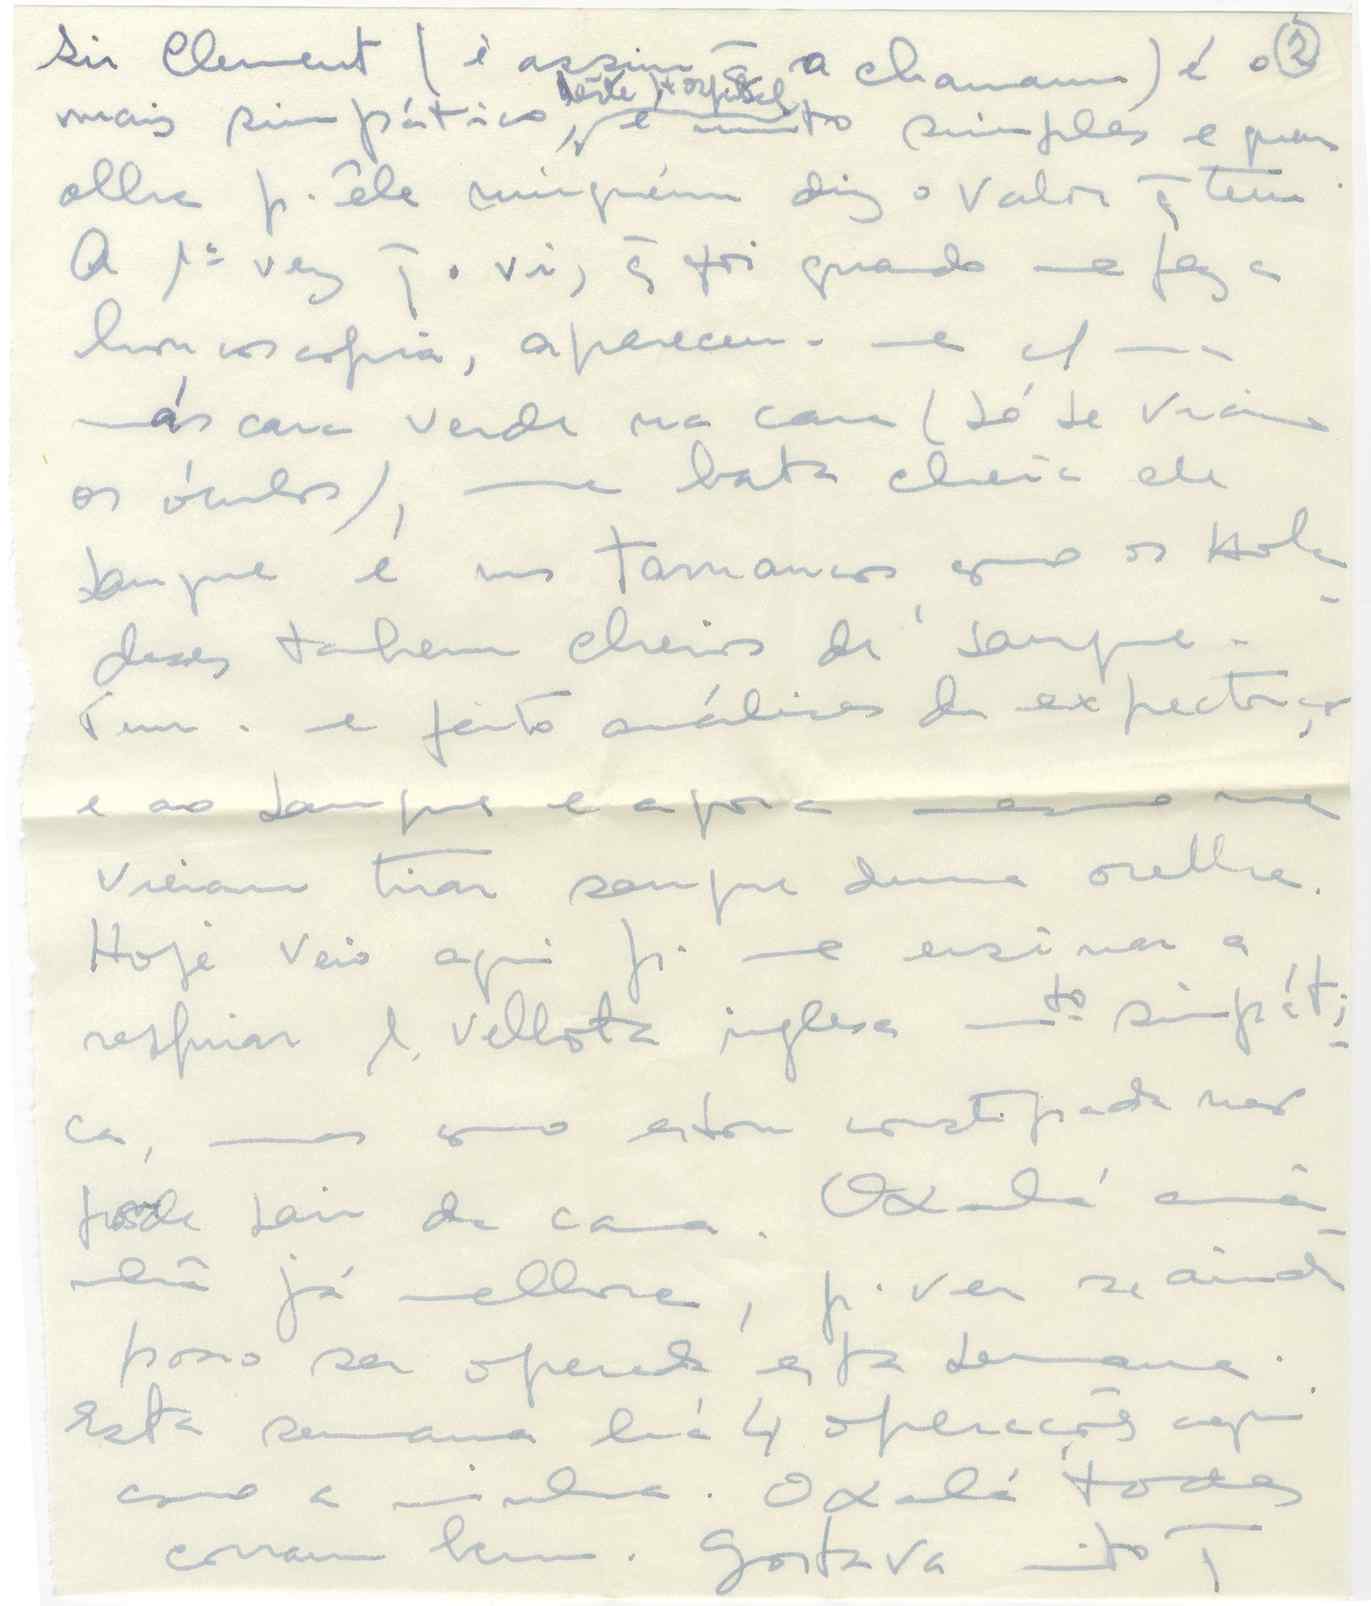 ②
Sir Clement (é assim q̄ o chamam) é o
mais simpático deste Hospital, é muito simples e quem
olha p. êle ninguém diz o valor q̄ tem.
A 1ª vez q̄ o vi, q̄ foi quando me fez a
broncoscopia, apareceu-me c/ uma
máscara verde na cara (só se viam
os óculos), uma bata cheia de
sangue e uns tamancos como os Holan-
deses tambem cheios de sangue.
Tem-me feito análises da expectoração
e ao sangue e agora mesmo me
vieram tirar sangue duma orelha.
Hoje veio aqui p. me ensinar a
respirar 1 velhota inglesa mto simpáti-
ca, mas como estou constipada não
pude sair da cama. Oxalá ama-
nhã já melhore, p. ver se ainda
posso ser operada esta semana.
Esta semana há 4 operações aqui
como a minha. Oxalá todas
corram bem. Gostava mto q̄